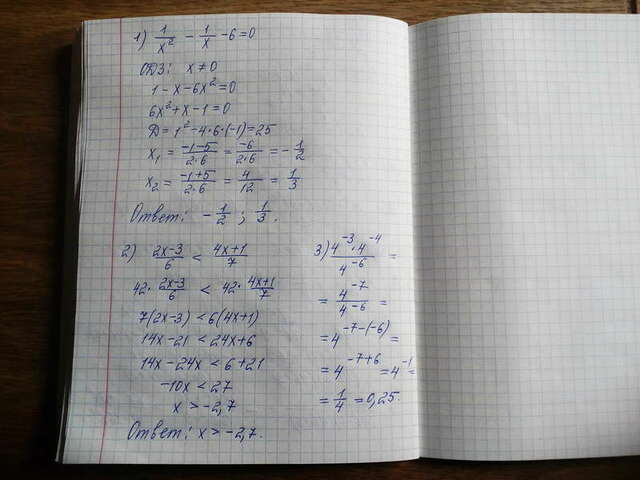 1) 1/x² − 1/x − 6 = 0
ОДЗ: x ≠ 0
1 − x − 6x² = 0
6x² + x − 1 = 0
Д = 1² − 4·6·(−1) = 25
x₁ = (−1−5)/(2·6) = −6/(2·6) = −1/2
x₂ = (−1+5)/(2·6) = 4/12 = 1/3
Ответ: −1/2 ; 1/3.
2) (2x−3)/6 < (4x+1)/7
42·(2x−3)/6 < 42·(4x+1)/7
7(2x−3) < 6(4x+1)
14x − 21 < 24x + 6
14x − 24x < 6 + 21
−10x < 27
x > −2,7
Ответ: x > −2,7.
3) (4⁻³·4⁻⁴)/4⁻⁶ =
= 4⁻⁷/4⁻⁶ =
= 4⁻⁷⁻⁽⁻⁶⁾ =
= 4⁻⁷⁺⁶ = 4⁻¹ =
= 1/4 = 0,25.